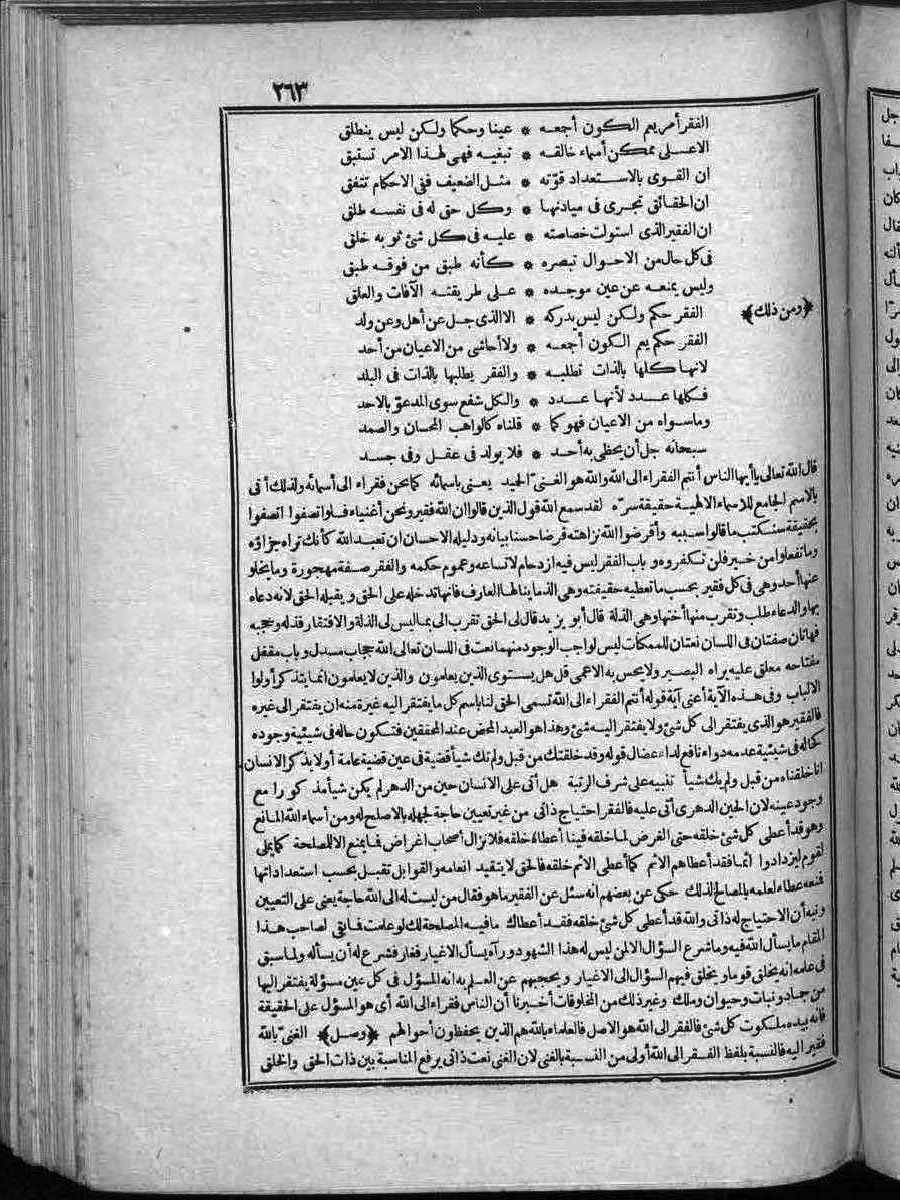 ٢٦٣
الفقر أمر يعم الكون أجمعه * عينا وحكما ولكن ليس ينطلق
الا على ممكن أسماء خالقه * تبغيه فهى لهذا الامر تستبق
ان القوى بالاستعداد قوته * مثل الضعيف ففى الاحكام تتفق
ان الحقائق تجرى فى ميادنها * وكل حق له فى نفسه طلق
ان الفقير الذى استولت خصاصته * عليه فى كل شئ ثوبه خلق
فى كل حال من الاحوال تبصره * كأنه طبق من فوقه طبق
وليس يمنعه عن عين موجده * على طريقته الآفات والعلق
﴿ومن ذلك﴾ الفقر حكم ولكن ليس يدركه * الا الذى جل عن أهل وعن ولد
الفقر حكم يعم الكون أجمعه * ولا أحاشى من الاعيان من أحد
لانها كلها بالذات تطلبه * والفقر يطلبها بالذات فى البلد
فكلها عدد لأنها عدد * والكل شفع سوى المدعو بالاحد
وما سواه من الاعيان فهو كما * قلناه كالواهب المحسان والصمد
سبحانه جل أن يحظى به أحد * فلا يولد فى عقل وفى جسد
قال الله تعالى يا أيها الناس أنتم الفقراء الى الله والله هو الغنى الحميد يعنى باسمائه كما نحن فقراء الى أسمائه ولذلك أتى
بالاسم الجامع للاسماء الالهية حقيقة سره لقد سمع الله قول الذين قالوا ان الله فقير ونحن أغنياء فلو اتصفوا اتصفوا
بحقيقة سنكتب ما قالوا سببه وأقرضوا الله نزاهته قرضا حسنا بيانه ودليله الاحسان ان تعبد الله كأنك تراه جزاؤه
وما تفعلوا من خير فلن تكفروه و باب الفقر ليس فيه ازدحام لاتساعه وعموم حكمه والفقر صفة مهجورة وما يخلو
عنها أحد وهى فى كل فقير بحسب ما تعطيه حقيقته وهى ألذ ما ينالها العارف فانها تدخله على الحق ويقبله الحق لانه دعاه
بها والدعاء طلب وتقرب منها أختها وهى الذلة قال أبو يزيد قال لى الحق تقرب الى بما ليس لى الذلة والافتقار فذله وحجبه
فهاتان صفتان فى اللسان نعتان للممكنات ليس لواجب الوجود منهما نعت فى اللسان تعالى الله حجاب مسدل وباب مقفل
مفتاحه معلق عليه يراه البصير ولا يحس به الاعمى قل هل يستوى الذين يعلمون والذين لا يعلمون انما يتذكر أولوا
الالباب وفى هذه الآية أعنى آية قوله أنتم الفقراء الى الله تسمى الحق لنا باسم كل ما يفتقر اليه غيرة منه ان يفتقر الى غيره
فالفقير هو الذى يفتقر الى كل شئ ولا يفتقر اليه شئ وهذا هو العبد المحض عند المحققين فتكون حاله فى شيئية وجوده
كحاله فى شيئية عدمه دواء نافع لداء عضال قوله وقد خلقتك من قبل ولم تك شيأ قضية فى عين قضية عامة أولا يذكر الانسان
انا خلقناه من قبل ولم يك شيأ تنبيه على شرف الرتبة هل أتى على الانسان حين من الدهر لم يكن شيأ مذكورا مع
وجود عينه لان الحين الدهرى أتى عليه فالفقر احتياج ذاتى من غير تعيين حاجة لجهله بالاصلح له ومن أسماء الله المانع
وهو قد أعطى كل شئ خلقه حتى الغرض لما خلقه فينا أعطاه خلقه فلا نزال أصحاب اغراض فما يمنع الا لمصلحة كما يملى
لقوم ليزدادوا اثما فقد أعطاهم الاثم كما أعطى الاثم خلقه فالحق لا يتقيد انعامه والقوابل تقبل بحسب استعداداتها
فمنعه عطاء لعلمه بالمصالح لذلك حكى عن بعضهم انه سئل عن الفقير ما هو فقال من ليست له الى الله حاجة يعنى على التعيين
ونبه أن الاحتياج له ذاتى والله قد أعطى كل شئ خلقه فقد أعطاك ما فيه المصلحة لك لو علمت فما بقى لصاحب هذا
المقام ما يسأل الله فيه وما شرع السؤال الا لمن ليس له هذا الشهود ورآه يسأل الاغيار فغار فشرع له أن يسأله ولما سبق
فى علمه انه يخلق قوما ويخلق فيهم السؤال الى الاغيار ويحجبهم عن العلم به انه المسؤل فى كل عين مسؤلة يفتقر اليها
من جماد ونبات وحيوان وملك وغير ذلك من المخلوقات أخبرنا أن الناس فقراء الى الله أى هو المسؤل على الحقيقة
فانه بيده ملكوت كل شئ فالفقر الى الله هو الاصل فالعلماء بالله هم الذين يحفظون أحوالهم ﴿وصل﴾ الغنى بالله
فقير اليه فالنسبة بلفظ الفقر الى الله أولى من النسبة بالغنى لان الغنى نعت ذاتى يرفع المناسبة بين ذات الحق والخلق